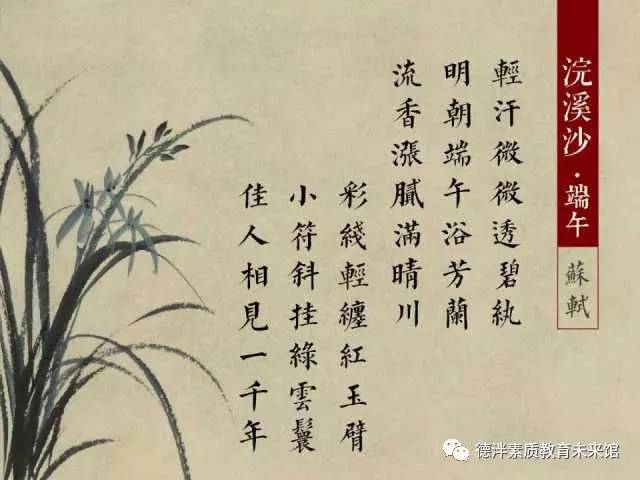 浣溪沙·端午
蘇軾
輕汗微微透碧紈
明朝端午浴芳蘭
流香漲膩滿晴川
彩綫輕纏紅玉臂
小符斜挂綠雲鬟
佳人相見一千年
德泮素质教育未来馆